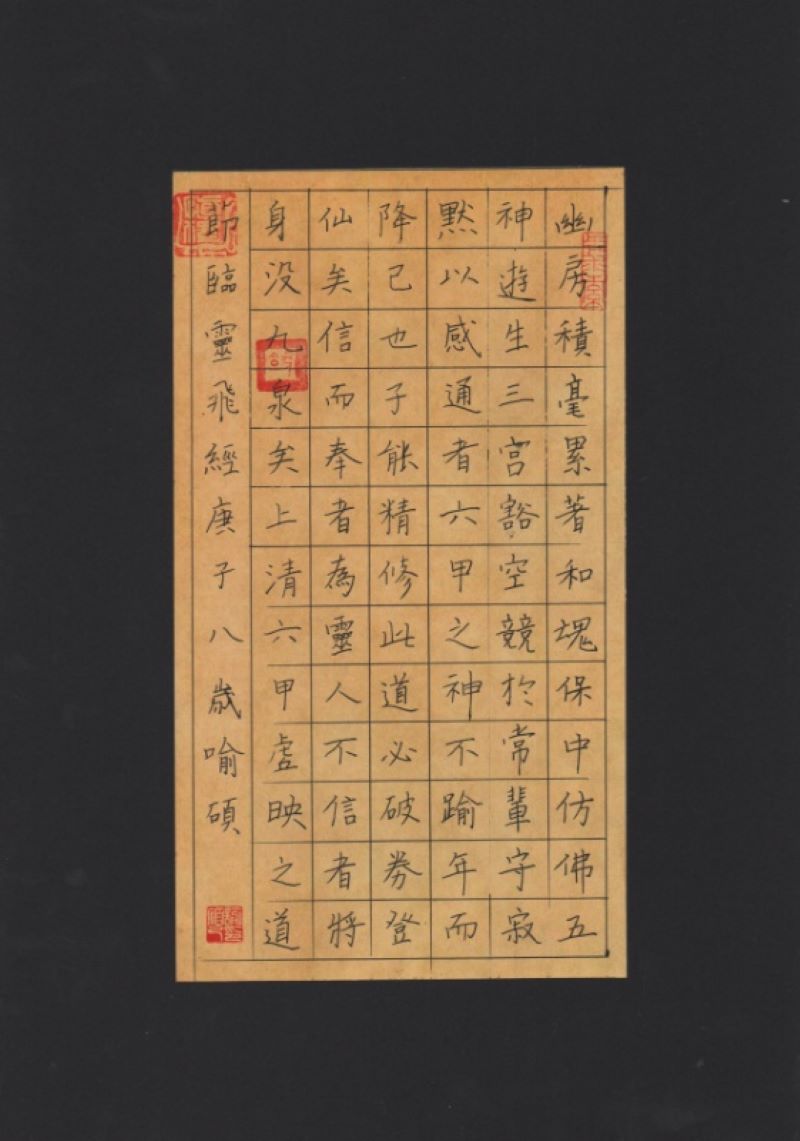 幽房積毫累著和塊保中仿佛五
神遊生三宮豁空競於常輩守寂
默以感通者六甲之神不踰年而
降己也子能精修此道必破券登
仙矣信而奉者為靈人不信者將
身没九泉矣上清六甲虛映之道
節臨靈飛經庚子八歲喻碩